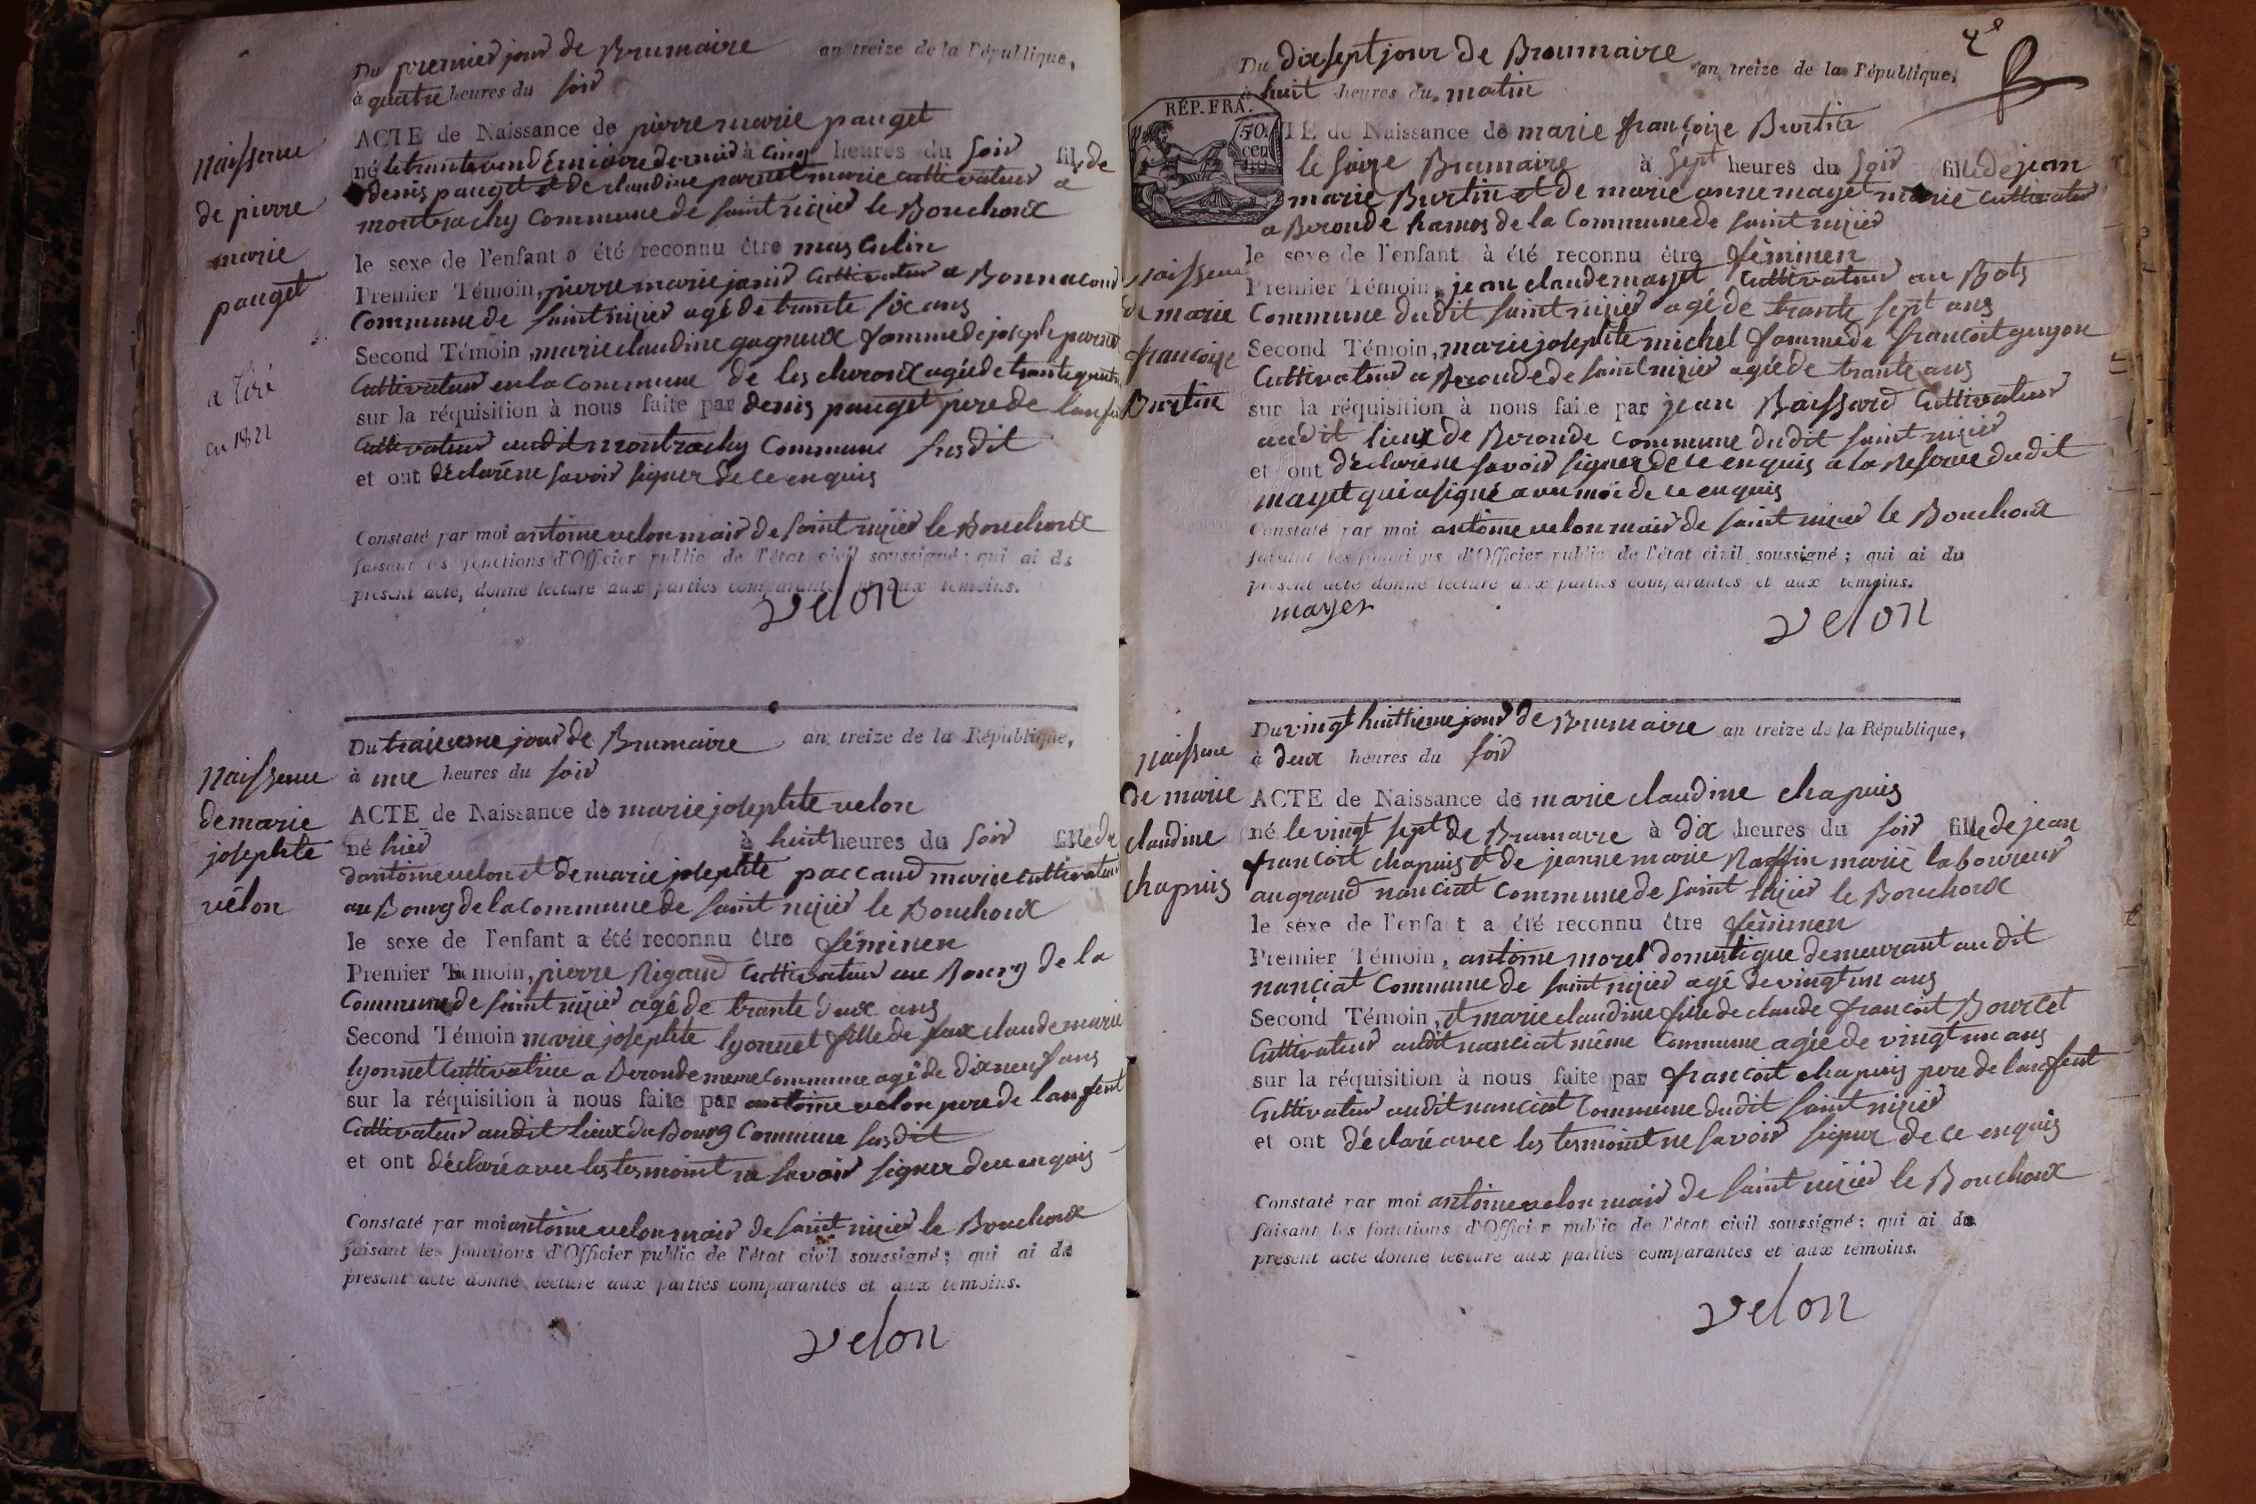 Du premier jour de Brumaire an treize de la République,
à quatre heures du soir
ACTE de Naissance de pierre marie pauget
né le trante vendémiaire dernier à cinq heures du soir fils de
denis pauget et de claudine parnet marie cultivateur a
montrachy Commune de saint nizier le Bouchoux
le sexe de l'enfant a été reconnu être masculin
Premier Témoin, pierre marie janin cultivateur a Bonnacour
Commune de saint nizier agé de trante six ans
Second Témoin, marie claudine gagneux famme de joseph parnet
Cultivateur en la Commune de les cheroux agée de trante quatre
sur la réquisition à nous faite par denis pauget pere de l'anfan
Cultivateur audit montrachy Commune susdit
et ont déclaré ne savoir signer de ce enquis
Constaté par moi antoine velon mair de saint nizier le Bouchoux
faisant les fonctions d'Officier public de l'état civil soussigné; qui ai du
présent acte, donné lecture aux parties comparantes et aux témoins.
velon
naissance
de pierre
marie
pauget
a tiré
en 1821
Du traizieme jour de Brumaire an treize de la République,
à une heures du soir
ACTE de Naissance de marie josephte velon
né hier à huit heures du soir fille de
dantoine velon et de marie josephte paccaud marie cultivateur
au Bourg de la commune de saint nizier le Bouchoux
le sexe de l'enfant a été reconnu être féminen
Premier Témoin, pierre Rigaud cultivateur au Bourg de la
Commune de saint nizier agé de trante deux ans
Second Témoin marie josephte lyonnet fille de feux claude marie
lyonnet Cultivatrice a Beronde meme Commune agé de dix neuf ans
sur la réquisition à nous faite par antoine velon pere de lanfent
Cultivateur audit lieux du Bourg Commune susdit
et ont déclaré avec les tesmoint ne savoir signer de ce enquis
Constaté par moi antoine velon mair de saint nizier le Bouchoux
faisant les fonctions d'Officier public de l'état civil soussigné; qui ai du
présent acte donné lecture aux parties comparantes et aux témoins.
velon
naissance
de marie
josephte
vélon
4e
Du dix sept jour de Brumaire an treize de la République,
à huit heures du matin
RÉP. FRA.
50.
cen
ACTE de Naissance de marie françoize Burtin
le saize Brumaire à sept heures du soir fille de jean
marie Burtin et de marie anne mayet marié cultivateur
a Beronde hamos de la Commune de saint nizier
le sexe de l'enfant à été reconnu être féminen
Premier Témoin, jean claude mayet cultivateur au Bots
Commune dudit saint nizier agé de trante sept ans
Second Témoin, marie josephte michel famme de francoit guyon
Cultivateur a Beronde de saint nizier agée de trante ans
sur la réquisition à nous faite par jean Baissard Cultivateur
audit lieux de Beronde Commune dudit saint nizier
et ont déclaré ne savoir signer de ce enquis a la Reserve dudit
mayet qui a signé avec moi de ce enquis
Constaté par moi antoine velon mair de saint nizier le Bouchoux
faisant les fonctions d'Officier public de l'état civil soussigné; qui ai du
présent acte donné lecture aux parties comparantes et aux témoins.
mayet
velon
naissance
de marie
francoize
Burtin
Du vingt huittieme jour de Brumaire an treize de la République,
à deux heures du soir
ACTE de Naissance de marie claudine chapuis
né le vingt sept de Brumaire à dix heures du soir fille de jean
francoit chapuis et de jeanne marie Raffin marié laboureur
au grand nanciat Commune de saint nizier le Bouchoux
le sexe de l'enfant a été reconnu être féminen
Premier Témoin, antoine morel domestique demeurant audit
nanciat Commune de saint nizier agé de vingt un ans
Second Témoin, et marie claudine fille de claude francoit Bourcet
Cultivateur audit nanciat même Commune agée de vingt un ans
sur la réquisition à nous faite par francoit chapuis pere de lanfent
Cultivateur audit nanciat Commune dudit saint nizier
et ont déclaré avec les tesmoint ne savoir signer de ce enquis
Constaté par moi antoine velon mair de saint nizier le Bouchoux
faisant les fonctions d'Officier public de l'état civil soussigné; qui ai du
présent acte donné lecture aux parties comparantes et aux témoins.
velon
naissance
de marie
claudine
chapuis